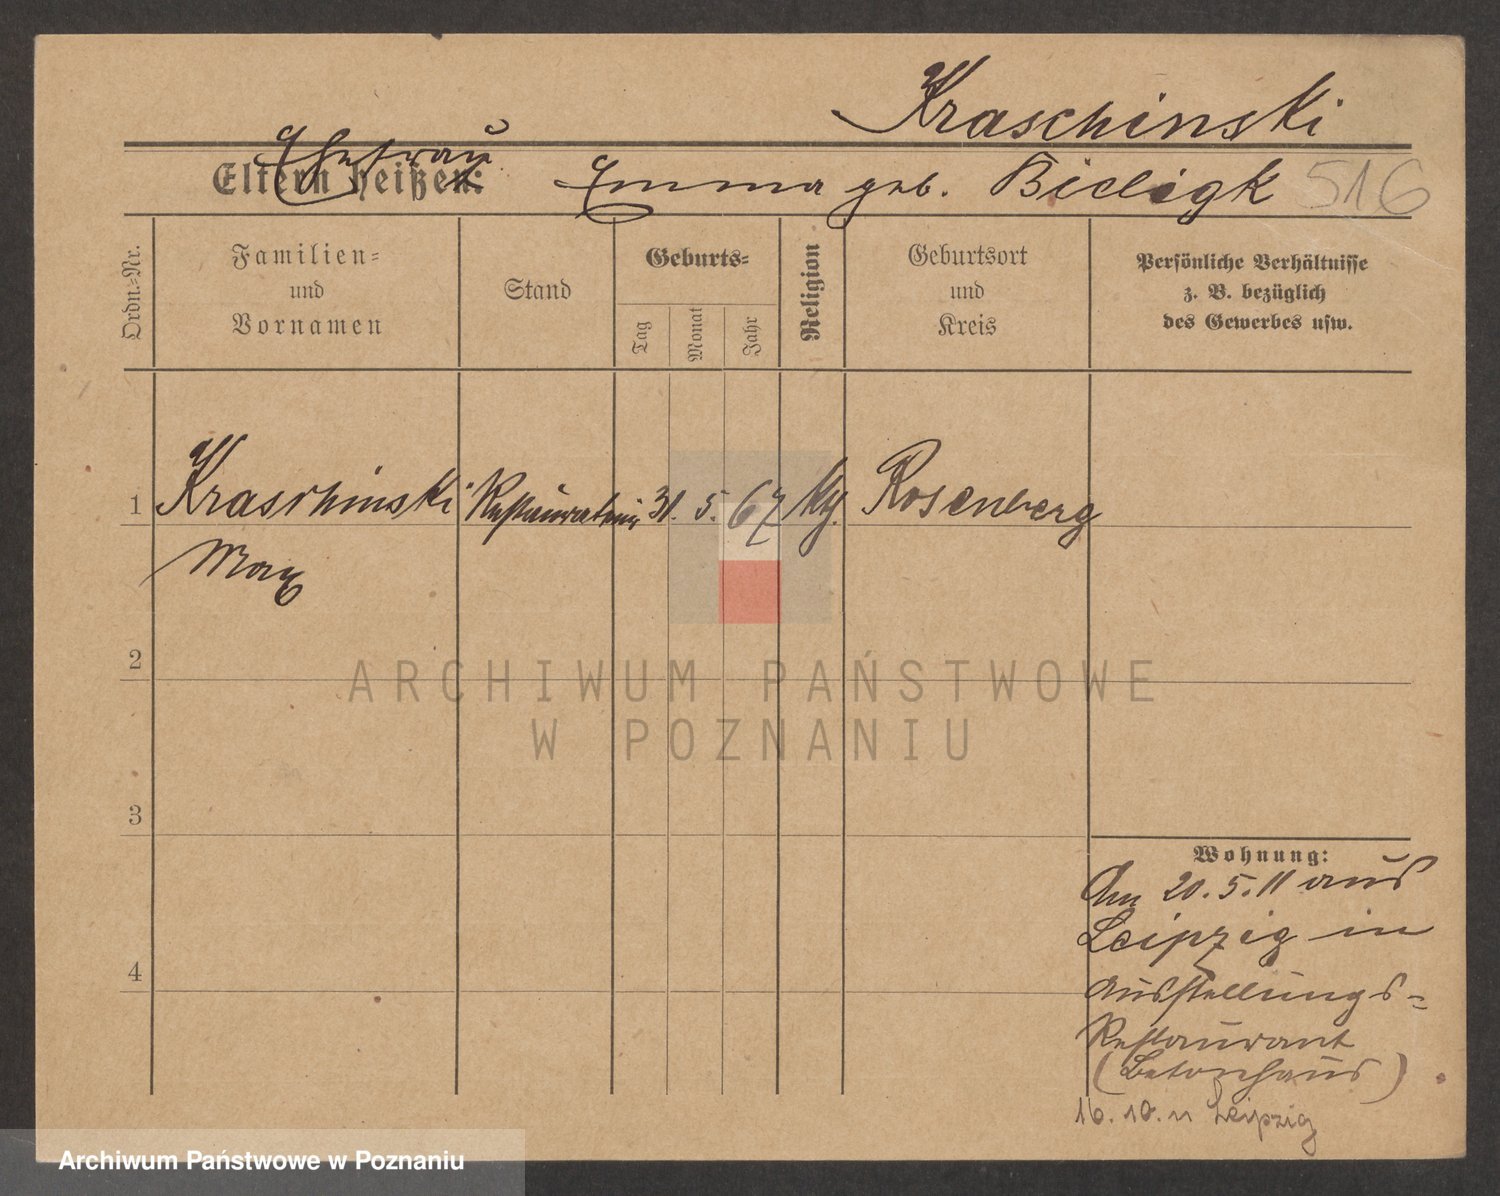 Kraschinski
Ehefrau
Eltern heißen: Emma geb. Bieligk 516
Ordn.-Nr.
Familien-
und
Vornamen
Stand
Geburts-
Tag
Monat
Jahr
Religion
Geburtsort
und
Kreis
Persönliche Verhältnisse
z. B. bezüglich
des Gewerbes usw.
1 Kraschinski Restaurateur 31. 5. 67 Rosenberg
Max
2
ARCHIWUM PAŃSTWOWE
W POZNANIU
3
Wohnung:
Am 20.5.11 aus
Leipzig in
Ausstellungs-
Restaurant
(Betonhaus)
4
16.10.11 Leipzig
Archiwum Państwowe w Poznaniu